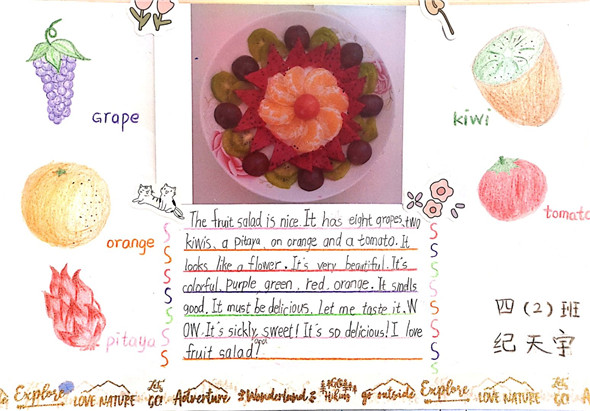 GRApe
kiwi
orange
tomato
pitaya
The fruit salad is nice. It has eight grapes, two
kiwis, a pitaya, on orange and a tomato. It
looks like a flower. It's very beautiful. It's
colorful. Purple green, red, orange. It smells
good. It must be delicious. Let me taste it. W
OW. It's sickly sweet! It's so delicious! I love
fruit salad!
四(2)班
纪天宇
Explore LOVE NATURE LET'S GO! Adventure Wonderland Hiking go outside Explore LOVE NATURE LET'S GO!